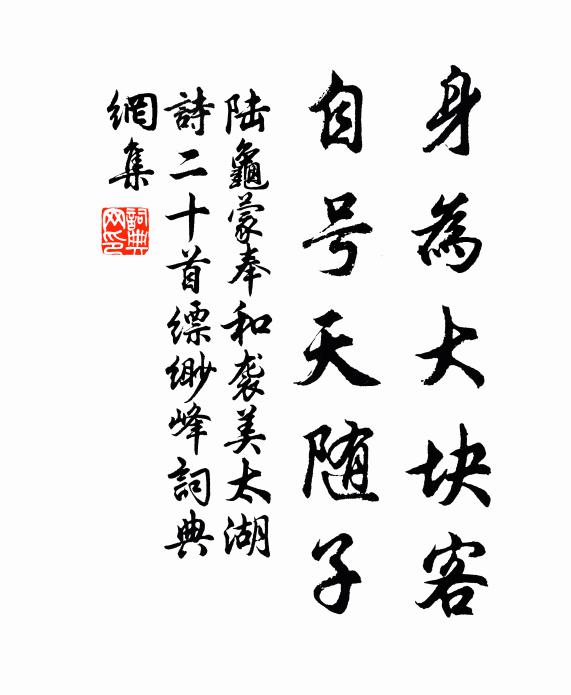 身為大块客
自号天随子
陆龜蒙奉和袭美太湖
詩二十首缥缈峰詞典
網集
詞典网印